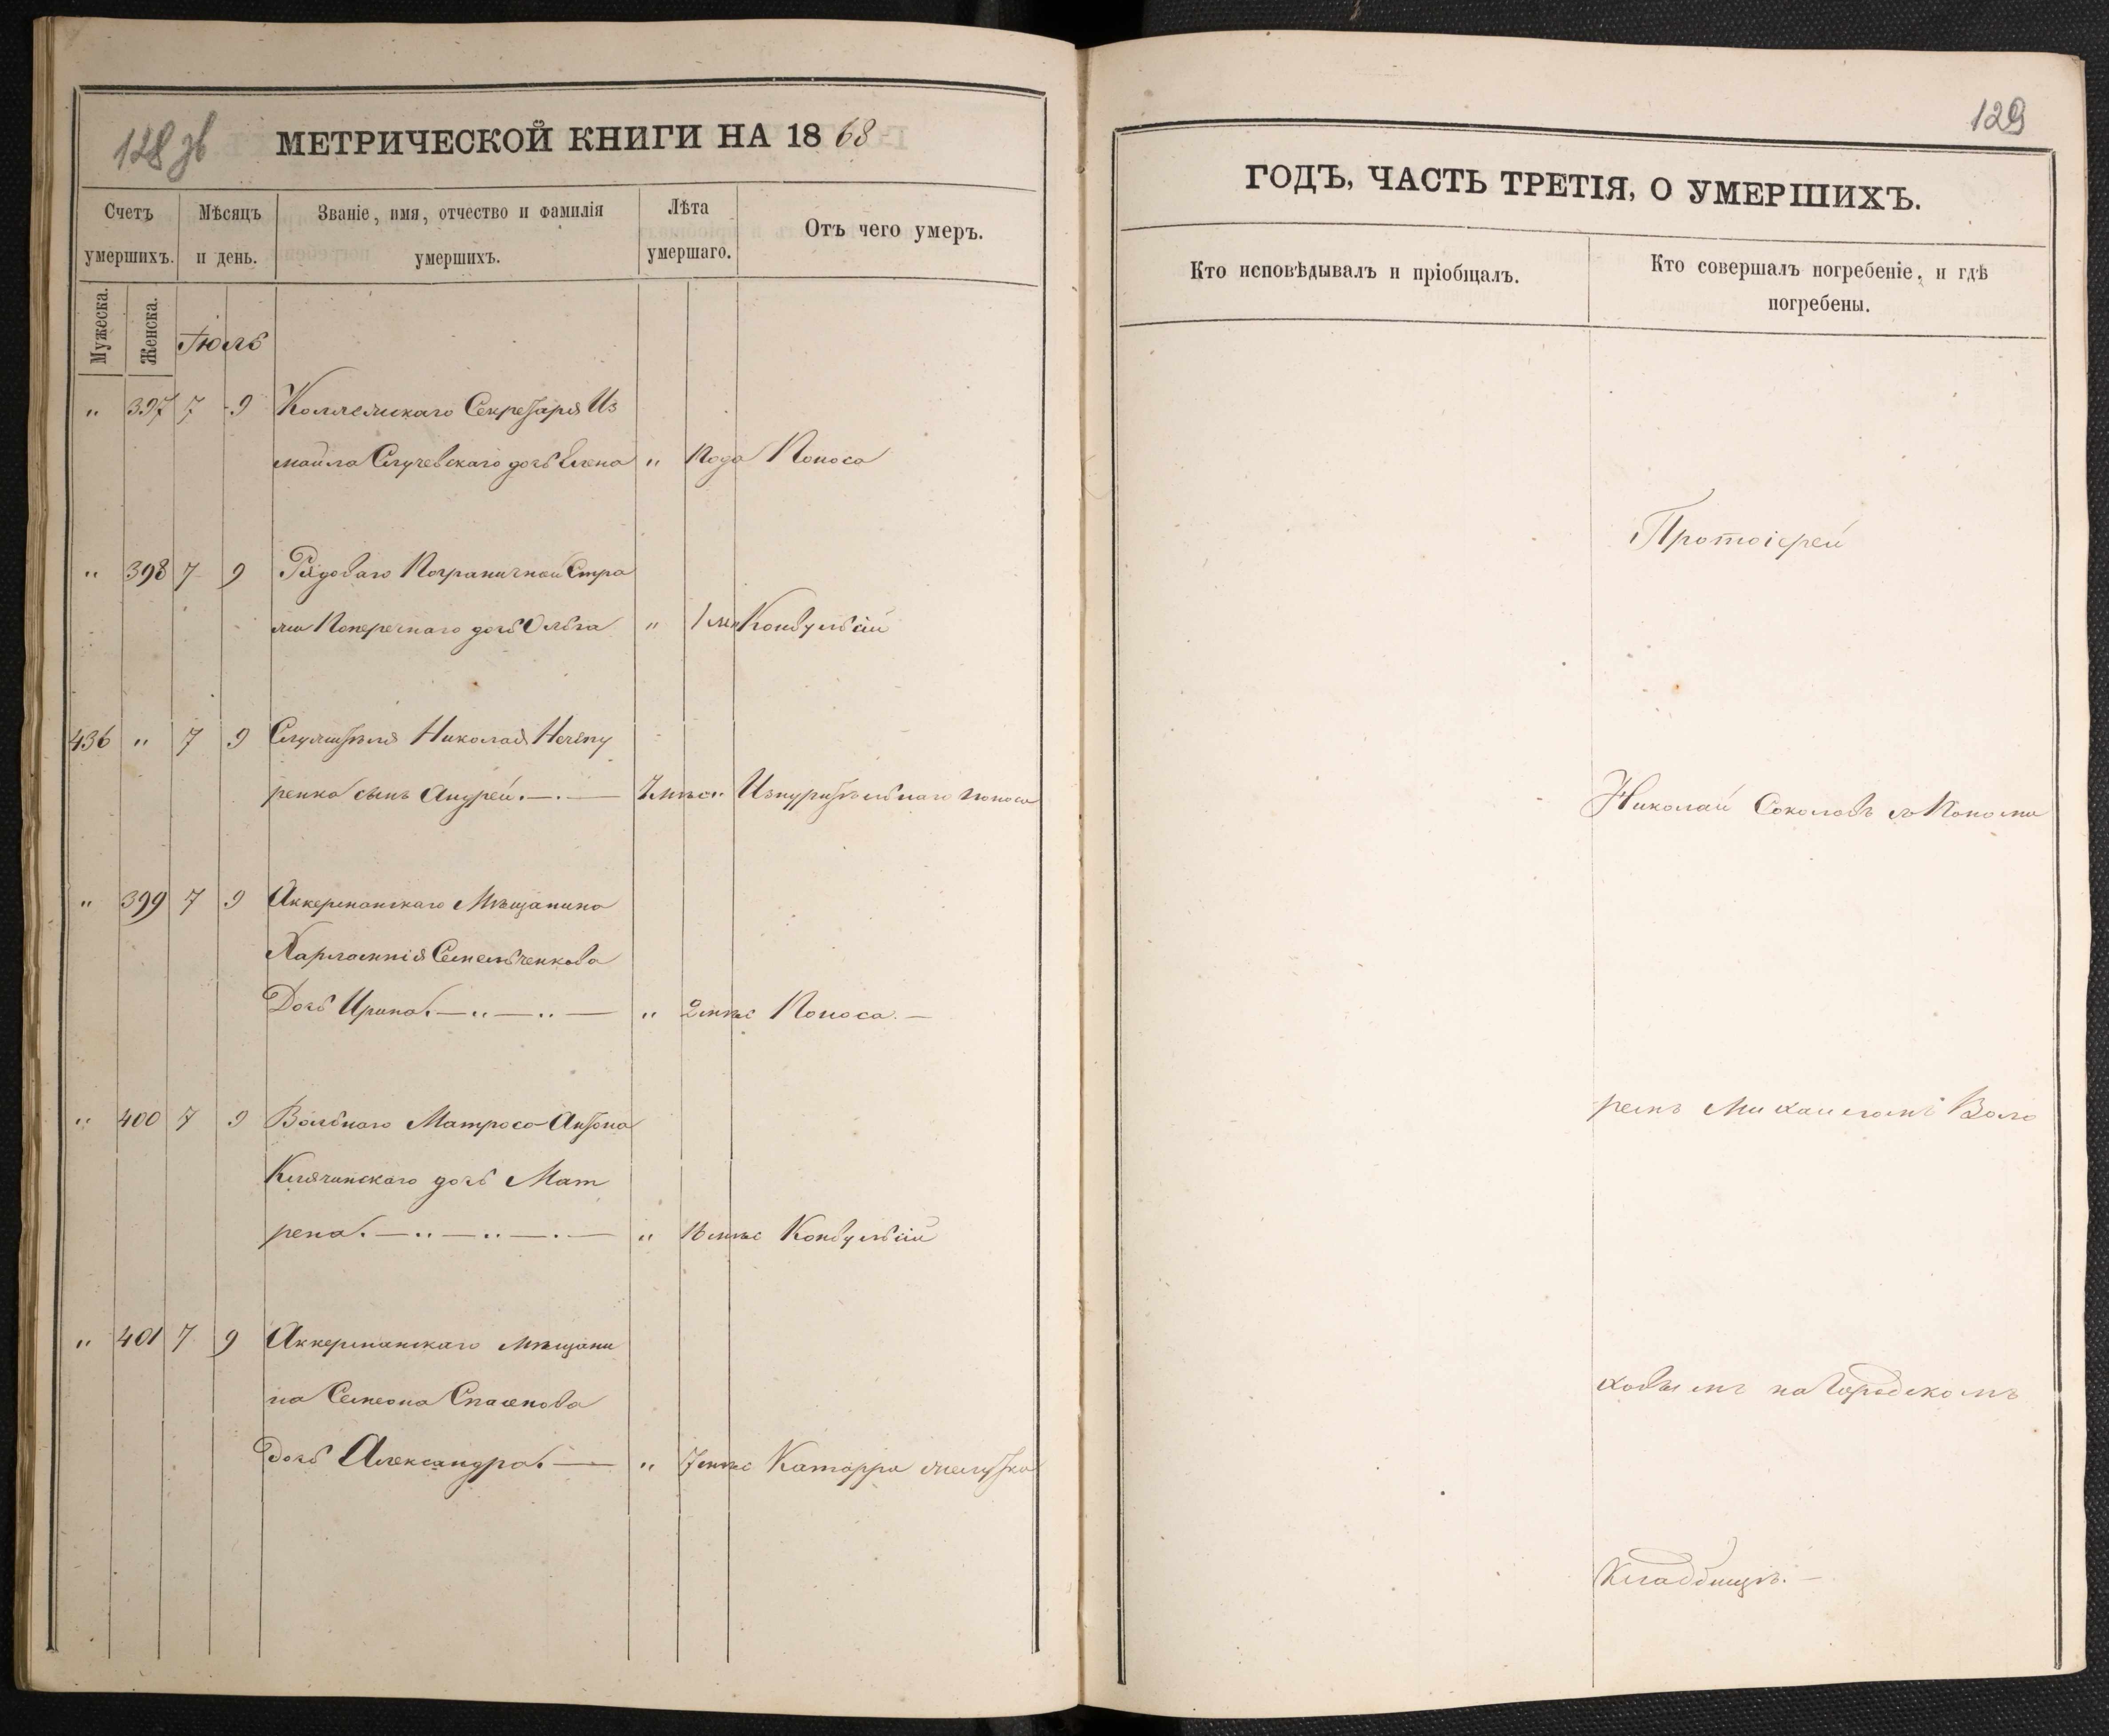 128 зв
МЕТРИЧЕСКОЙ КНИГИ НА 1868
Счетъ умершихъ.
Мѣсяцъ и день.
Званіе, имя, отчество и фамилія умершихъ.
Лѣта умершаго.
Отъ чего умеръ.
Мужеска.
Женска.
Іюль
" 397 7 9 Коллежскаго Секретаря Из
маила Случевскаго дочь Елена " 1 года Поноса
" 398 7 9 Рядоваго Пограничной Стра
жи Поперечнаго дочь Ольга " 1 мѣс Конвульсій
436 " 7 9 Служителя Николая Нечепу
ренка сынъ Андрей. 7 мѣс " Изнурительнаго поноса
" 399 7 9 Аккерманскаго Мѣщанина
Харлампія Семельченкова
Дочь Ирина. " 2 мѣс Поноса.
" 400 7 9 Вольнаго Матроса Антона
Клячинскаго дочь Мат
рена. " мѣс Конвульсій
" 401 7 9 Аккерманскаго мѣщани
на Семеона Спасенова
Дочь Александра. " 7 мѣс Катарра желудка
129
ГОДЪ, ЧАСТЬ ТРЕТІЯ, О УМЕРШИХЪ.
Кто исповѣдывалъ и пріобщалъ.
Кто совершалъ погребеніе, и гдѣ погребены.
Протоіерей
Николай Соколовъ съ Понома
ремъ Михаиломъ Воло
ховымъ на Городскомъ
Кладбищѣ.